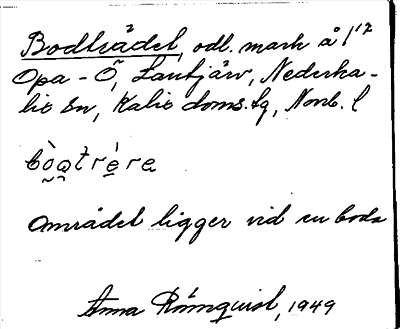 Bodträdet, odl. mark å 1/12
Opa-Ö, Lantjärv, Nederka-
lix sn, Kalix doms. tg, Norrb. l
bòatrère
Området ligger vid en boda
Anna Römquist, 1949